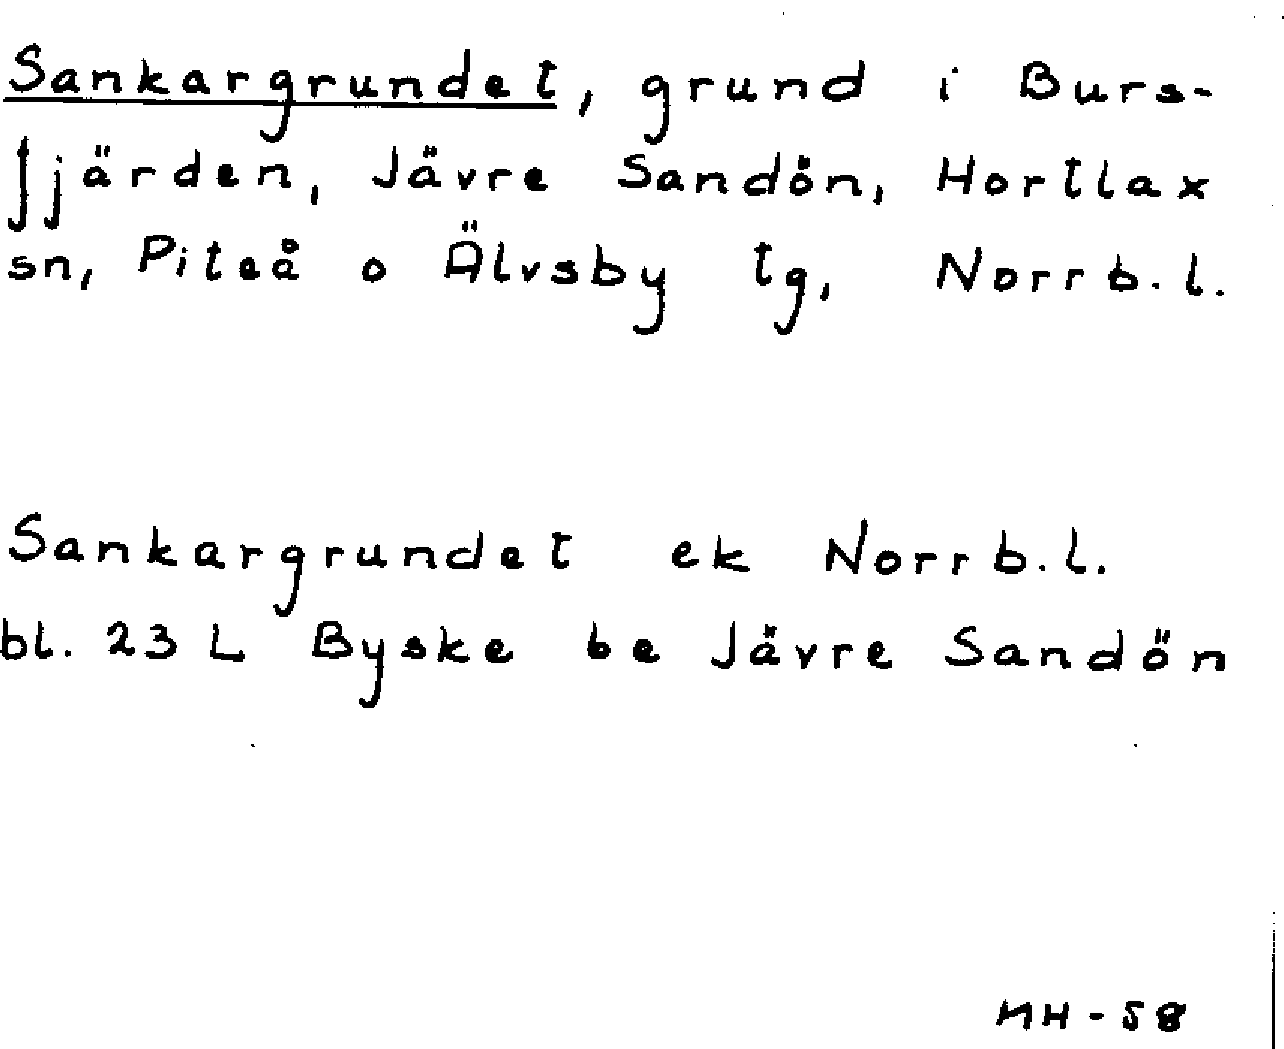 Sankargrundet, grund i Burs-
fjärden, Jävre Sandön, Hortlax
sn, Piteå o Älvsby tg, Norrb.l.
Sankargrundet ek Norrb.l.
bl. 23 L Byske be Jävre Sandön
MH-58